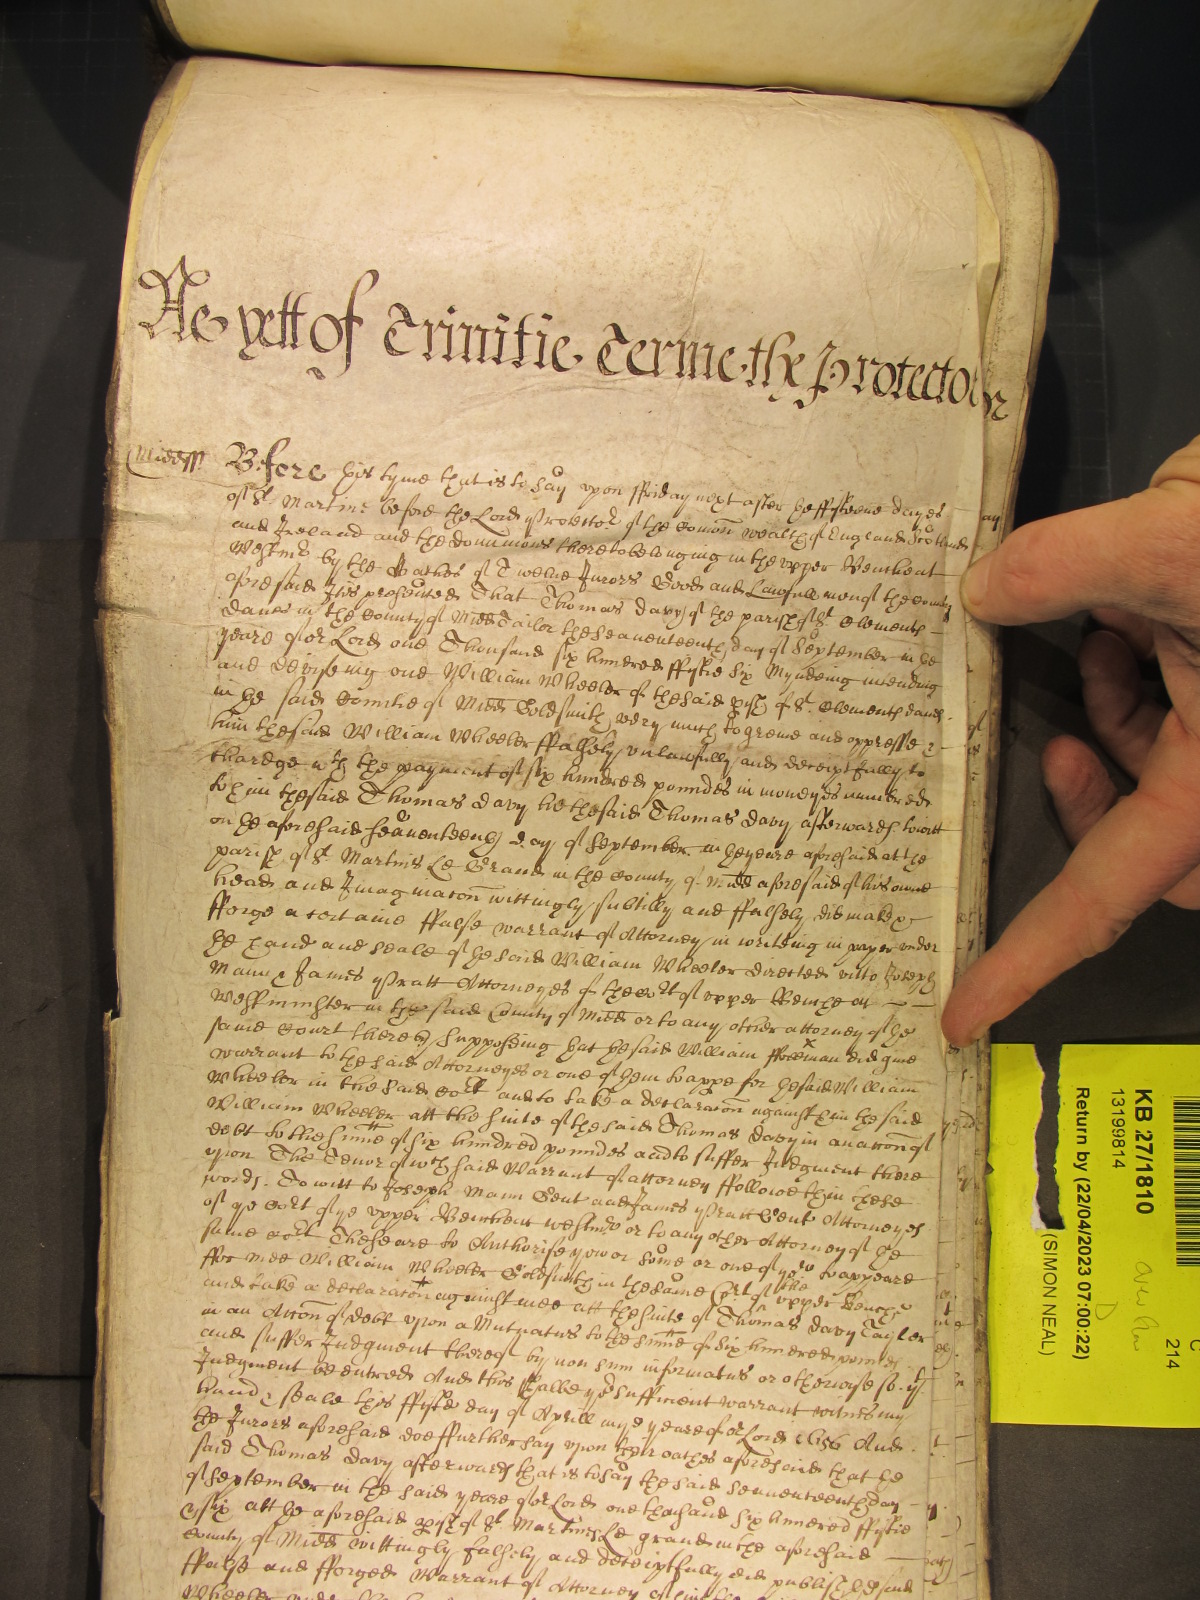 As yett of Trinitie Terme the Protector
Midds
Before this tyme that is to say upon ffriday next after the fifteene dayes
of St Martin before the Lord Protector of the Comon wealth of England Scotland
and Ireland and the dominions thereto belonging in the upper Bench at
Westmr by the Oathes of Twelve Jurors Good and Lawfull men of the County
aforesaid It is presented That Thomas Davy of the parish of St Clements
Danes in the County of Midd Tailor the seaventeenth day of September in the
yeare of or Lord one Thousand six hundred ffiftie six Myndeing intending
and deviseing one William Wheeler of the said pish of St Clements danes
in the said Countie of Midd Goldsmith very much to greive and oppresse &
him the said William Wheeler ffalsely unlawfully and deceiptfully to
chardge wth the payment of six hundred poundes in moneyes numbered
to him the said Thomas Davy he the said Thomas Davy afterwards towitt
on the aforesaid seaventeenth day of September in the yeare aforesaid at the
parish of St Martins Le Grand in the County of Midd aforesaid of his owne
head and Imaginacon wittingly subtilly and ffalsely did make &
fforge a certaine ffalse warrant of Attorney in writeing in paper under
the hand and seale of the said William Wheeler directed unto Joseph
Mann & James Pratt Attorneyes of the Cort of upper Benche at
Westminster in the said County of Midd or to any other attorney of the
same Court there by supposeing that the said William ffreeman did give
warrant to the said Attorneyes or one of them to appe for the said William
Wheeler in the said Cort and to take a declaracon against him the said
William Wheeler att the suite of the said Thomas Davy in an accon of
debt to the sume of six hundred poundes and to suffer Judgment there
upon The Tenor of wch said Warrant of attorney ffolloweth in these
words. To witt to Joseph Mann Gent and James Pratt Gent Attorneyes
of ye Cort of ye upper Bench at Westmr or to any other Attorney of the
same Cort These are to Authorise you or some or one of you to appeare
ffor mee William Wheeler Goldsmith in the same Cort of the upper Bench
and take a declaracon against mee att the suite of Thomas Davy Taylor
in an Accon of debt upon a Mutuatus to the sume of six hundred poundes
and suffer Judgment thereof by non sum informatus or otherwise so yt
Judgment be entred And this shalbe yor sufficient warrant witnes my
hand & seale this ffifte day of Aprill in ye yeare of or Lord 1656 And
the Jurors aforesaid doe ffurther say upon their oathes aforesaid that the
said Thomas Davy afterwards that is to say the said seaventeenth day
of September in the said yeare of or Lord one thousand six hundred ffiftie
& six att the aforesaid pish of St Martins Le grand in the aforesaid
County of Midd wittingly falsely and deceiptfully did publish the said
ffalse and fforged Warrant of Attorney
Wheeler
KB 27/1810
13199814
Return by (22/04/2023 07:00:22)
(SIMON NEAL)
214